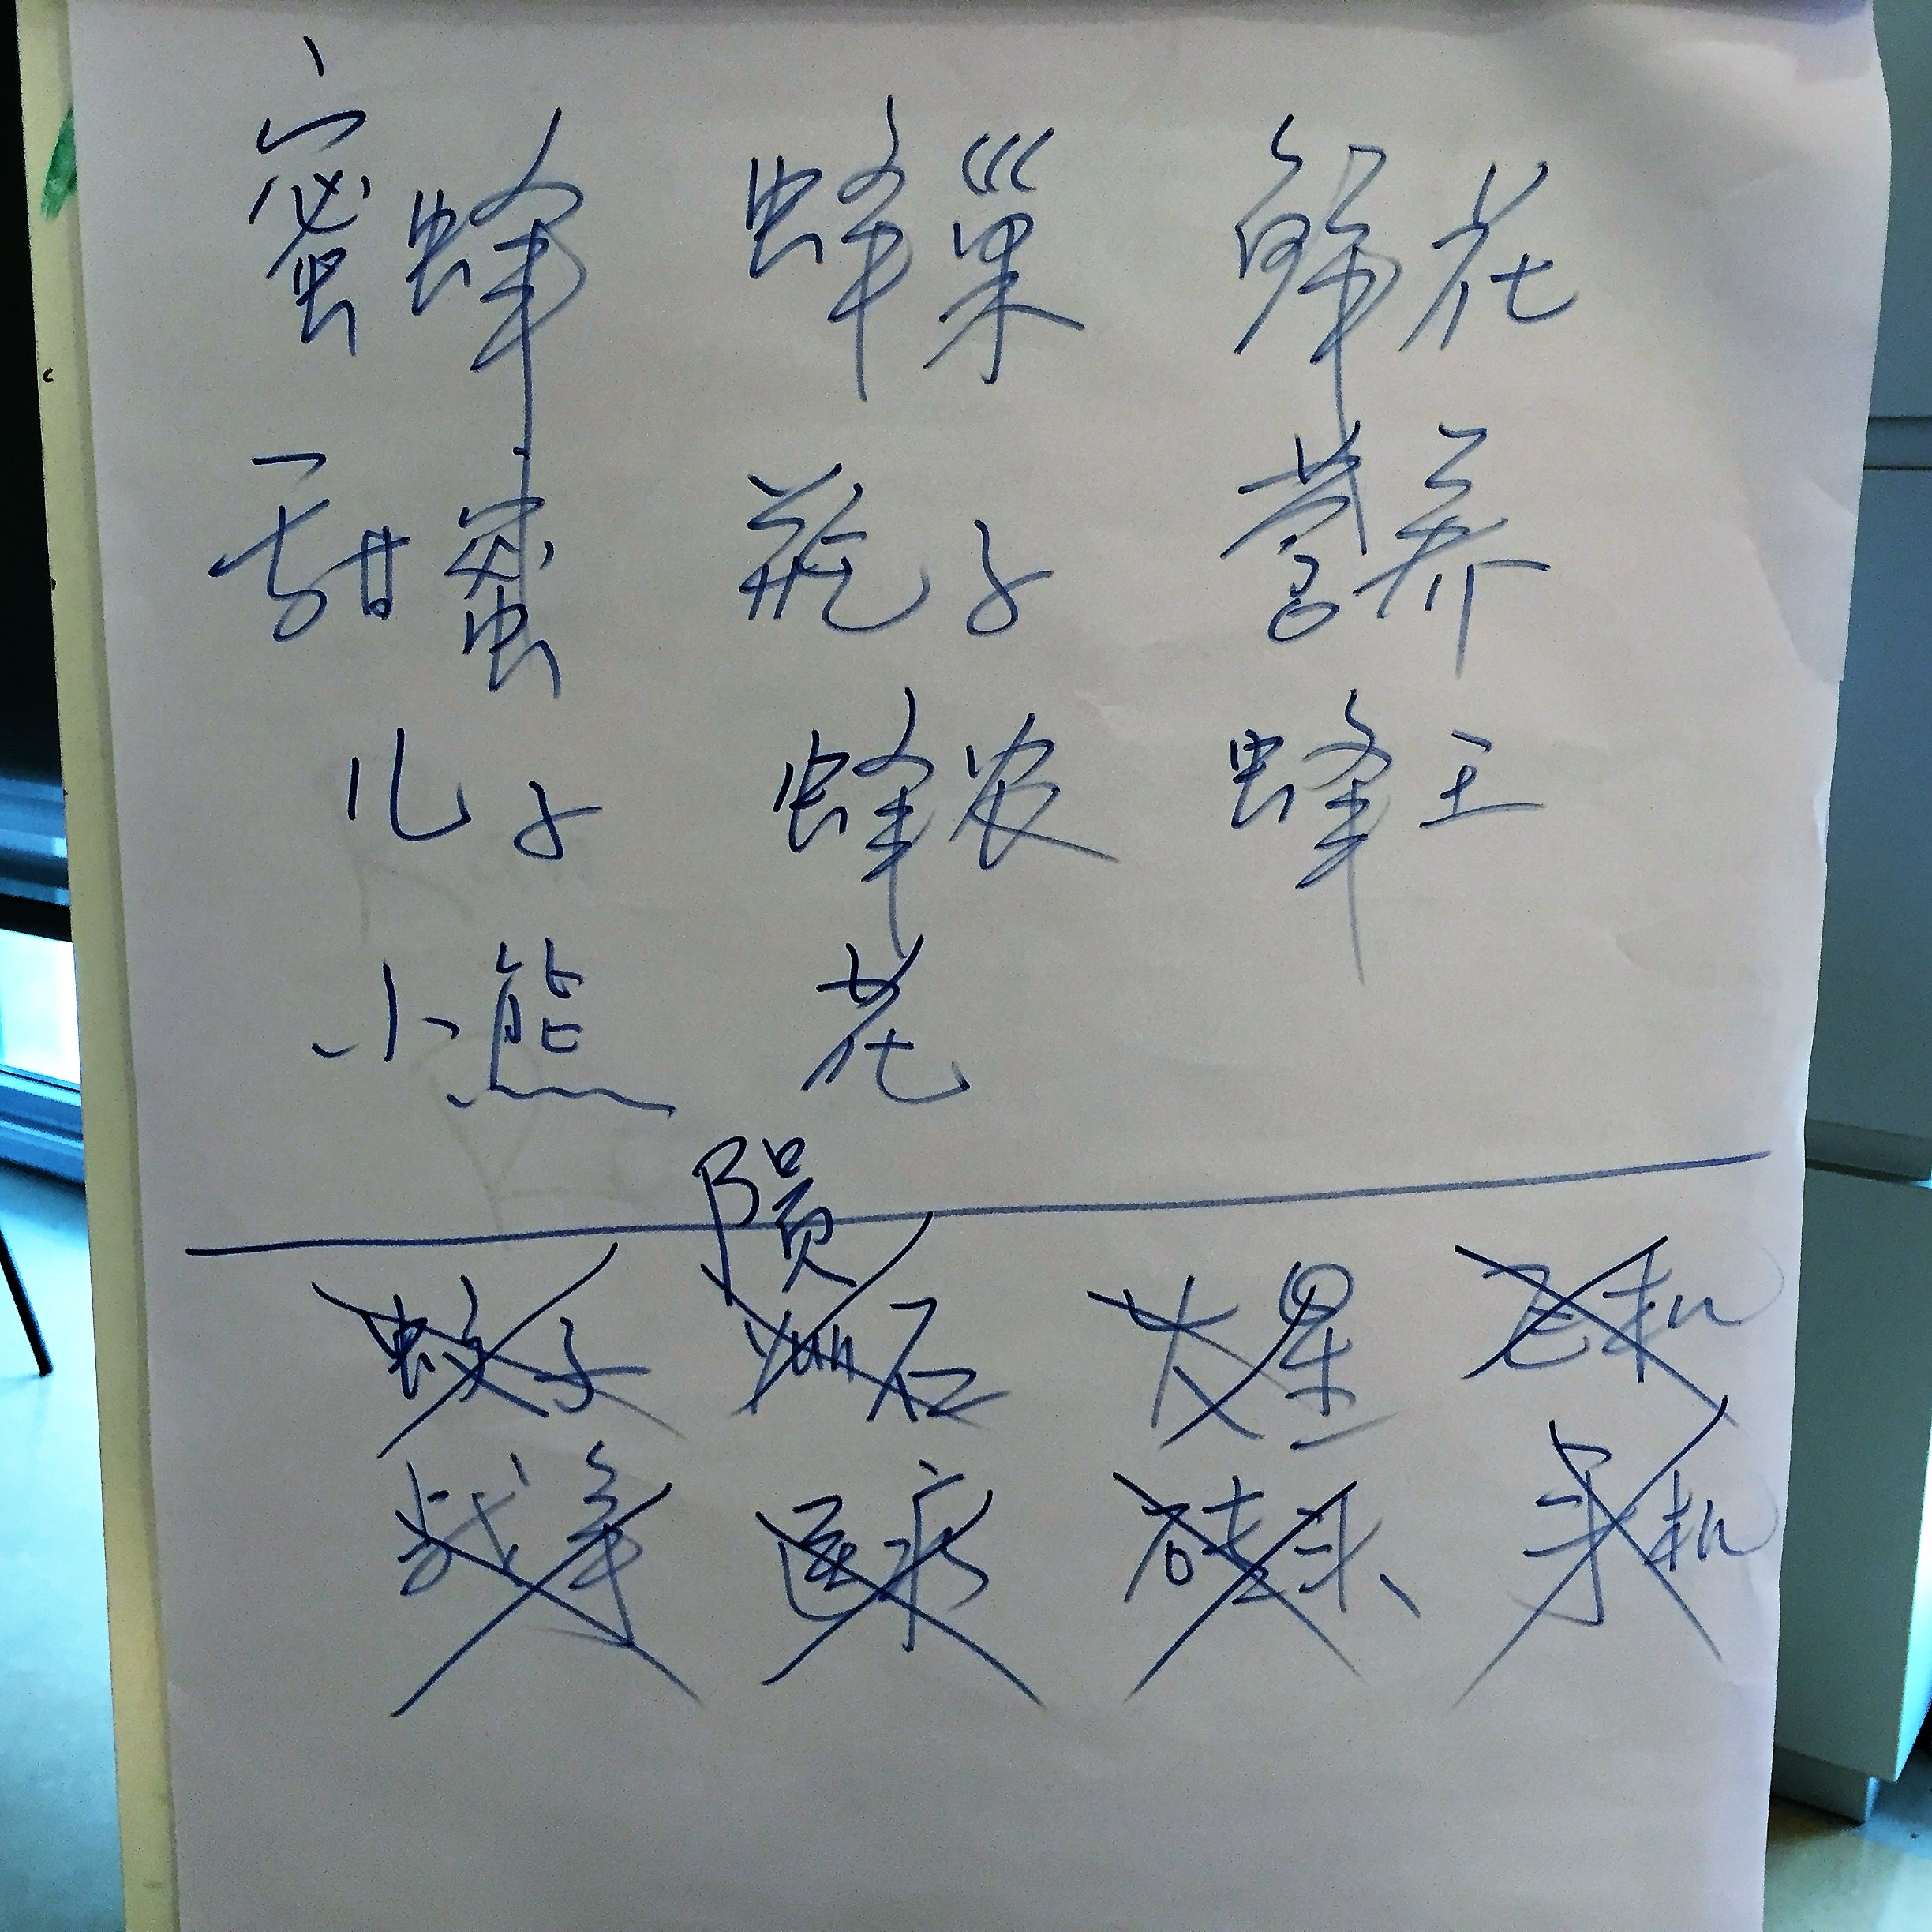 蜜蜂 蜂巢 鲜花
甜蜜 瓶子 营养
儿子 蜂农 蜂王
小熊 花
陨
蚊子 yun石 火星 飞机
战争 医疗 砖头 手机